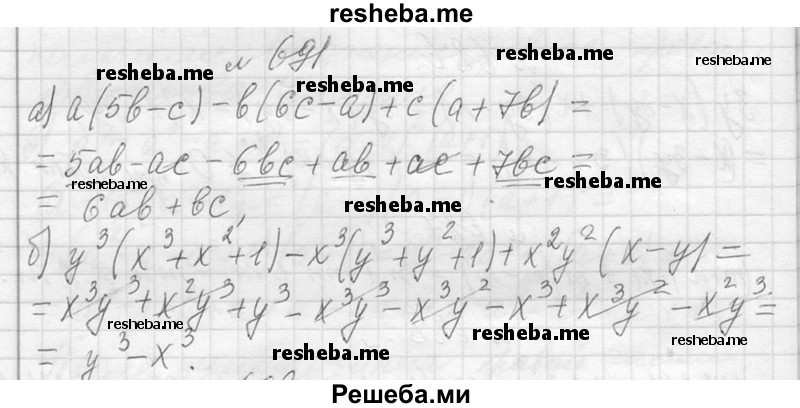 resheba.me
№ 691
resheba.me
resheba.me
resheba.me
а) a(5b-c)-b(6c-a)+c(a+7b)=
=5ab-ac-6bc+ab+ac+7bc=
resheba.me
resheba.me
=6ab+bc,
resheba.me
б) y³(x³+x²+1)-x³(y³+y²+1)+x²y²(x-y)=
=x³y³+x²y³+y³-x³y³-x³y²-x³+x³y²-x²y³=
resheba.me
resheba.me
resheba.me
=y³-x³.
resheba.me
Решеба.ми